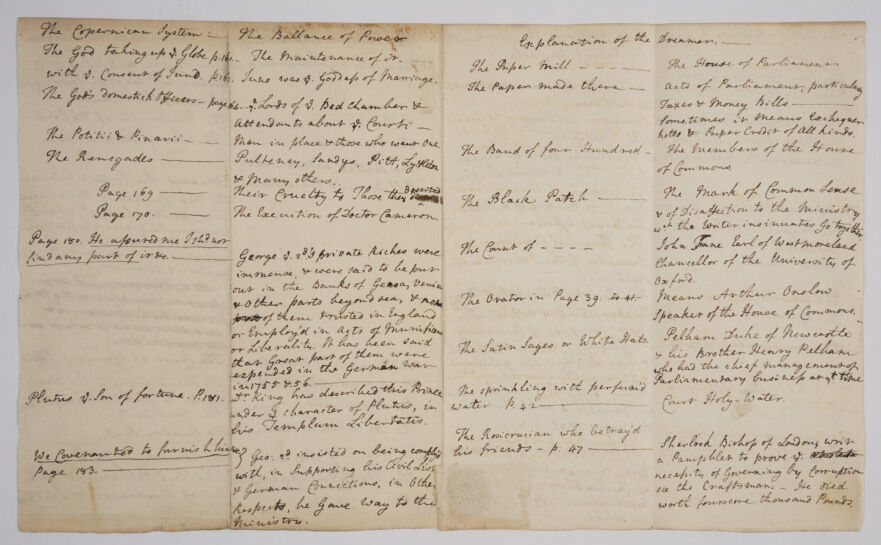 Explanation of the Dreamer. —
The Paper Mill — — — — The House of Parliament
The Paper made there — Acts of Parliament, particulary
Taxes & Money Bills —
Sometimes it means Exchequer
notes & Paper Credit of All kinds.
The Band of four Hundred — The Members of the House
of Commons.
The Black Patch — The Mark of Common Sense
& of Disaffection to the Ministry
wch the Writer insinuates Go together
The Count of - - - - John Fane Earl of Westmoreland
Chancellor of the University of
Oxford.
The Orator in Page 39. to 41. Means Arthur Onslow
Speaker of the House of Commons.
The Satin Sages or White Hats. Pelham Duke of Newcastle
& his Brother Henry Pelham
who had the chief management of
Parliamentary business at yt time
The sprinkling with perfum'd
water P. 42 — Court Holy-Water.
The Rosicrucian who betray'd
his friends — p. 47 — Sherlock Bishop of London, writ
a Pamphlet to prove ye
necessity of Governing by Corruption
see the Craftsman, — He died
worth fourscore thousand Pounds.
The Copernican System — The Ballance of Power
The God taking up ye Globe — The Maintenance of it.
with ye Consent of Juno. Juno was ye Goddess of Marriage.
The Gods domestick Officers — ye Lords of ye Bed Chamber &
Attendants about ye Court —
The Potitii & Pinarii — Men in place & those who went out
The Renegades — Pulteney, Sandys, Pitt, Lyttelton
& Many others.
Page 169 — Their Cruelty to Those they deserted
Page 170. — The Execution of Doctor Cameron.
Page 180. He assured me I shd not
find any part of it &c. — George ye 2d's private Riches were
immense, & were said to be put
out in the Banks of Genoa, Venice
& Other parts beyond sea, & none
of them trusted in England
or Employ'd in Acts of Munificence
or Liberality. It has been said
that Great part of them were
expended in the German War
in 1755 & 56. —
Plutus ye Son of fortune. P. 181. Dr King has described this Prince
under ye character of Plutus, in
his Templum Libertatis.
We Covenanted to furnish him
Page 183. — Geo. 2d insisted on being complied
with, in Supporting his Civil List
& German Connections, in Other
Respects, he Gave Way to the
Ministry.